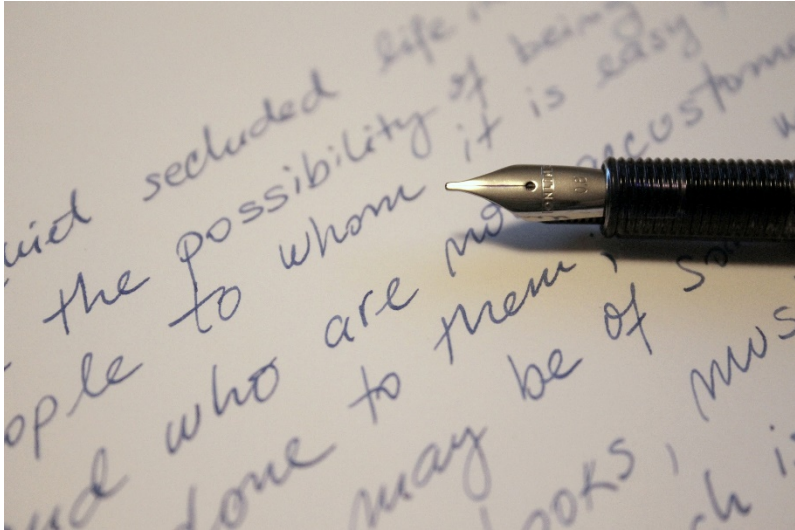 uiet secluded life in
the possibility of being
ople to whom it is easy
and who are no ccustome
done to them; w
may be of so
ooks, mus
ch i
ONLINE
0.8